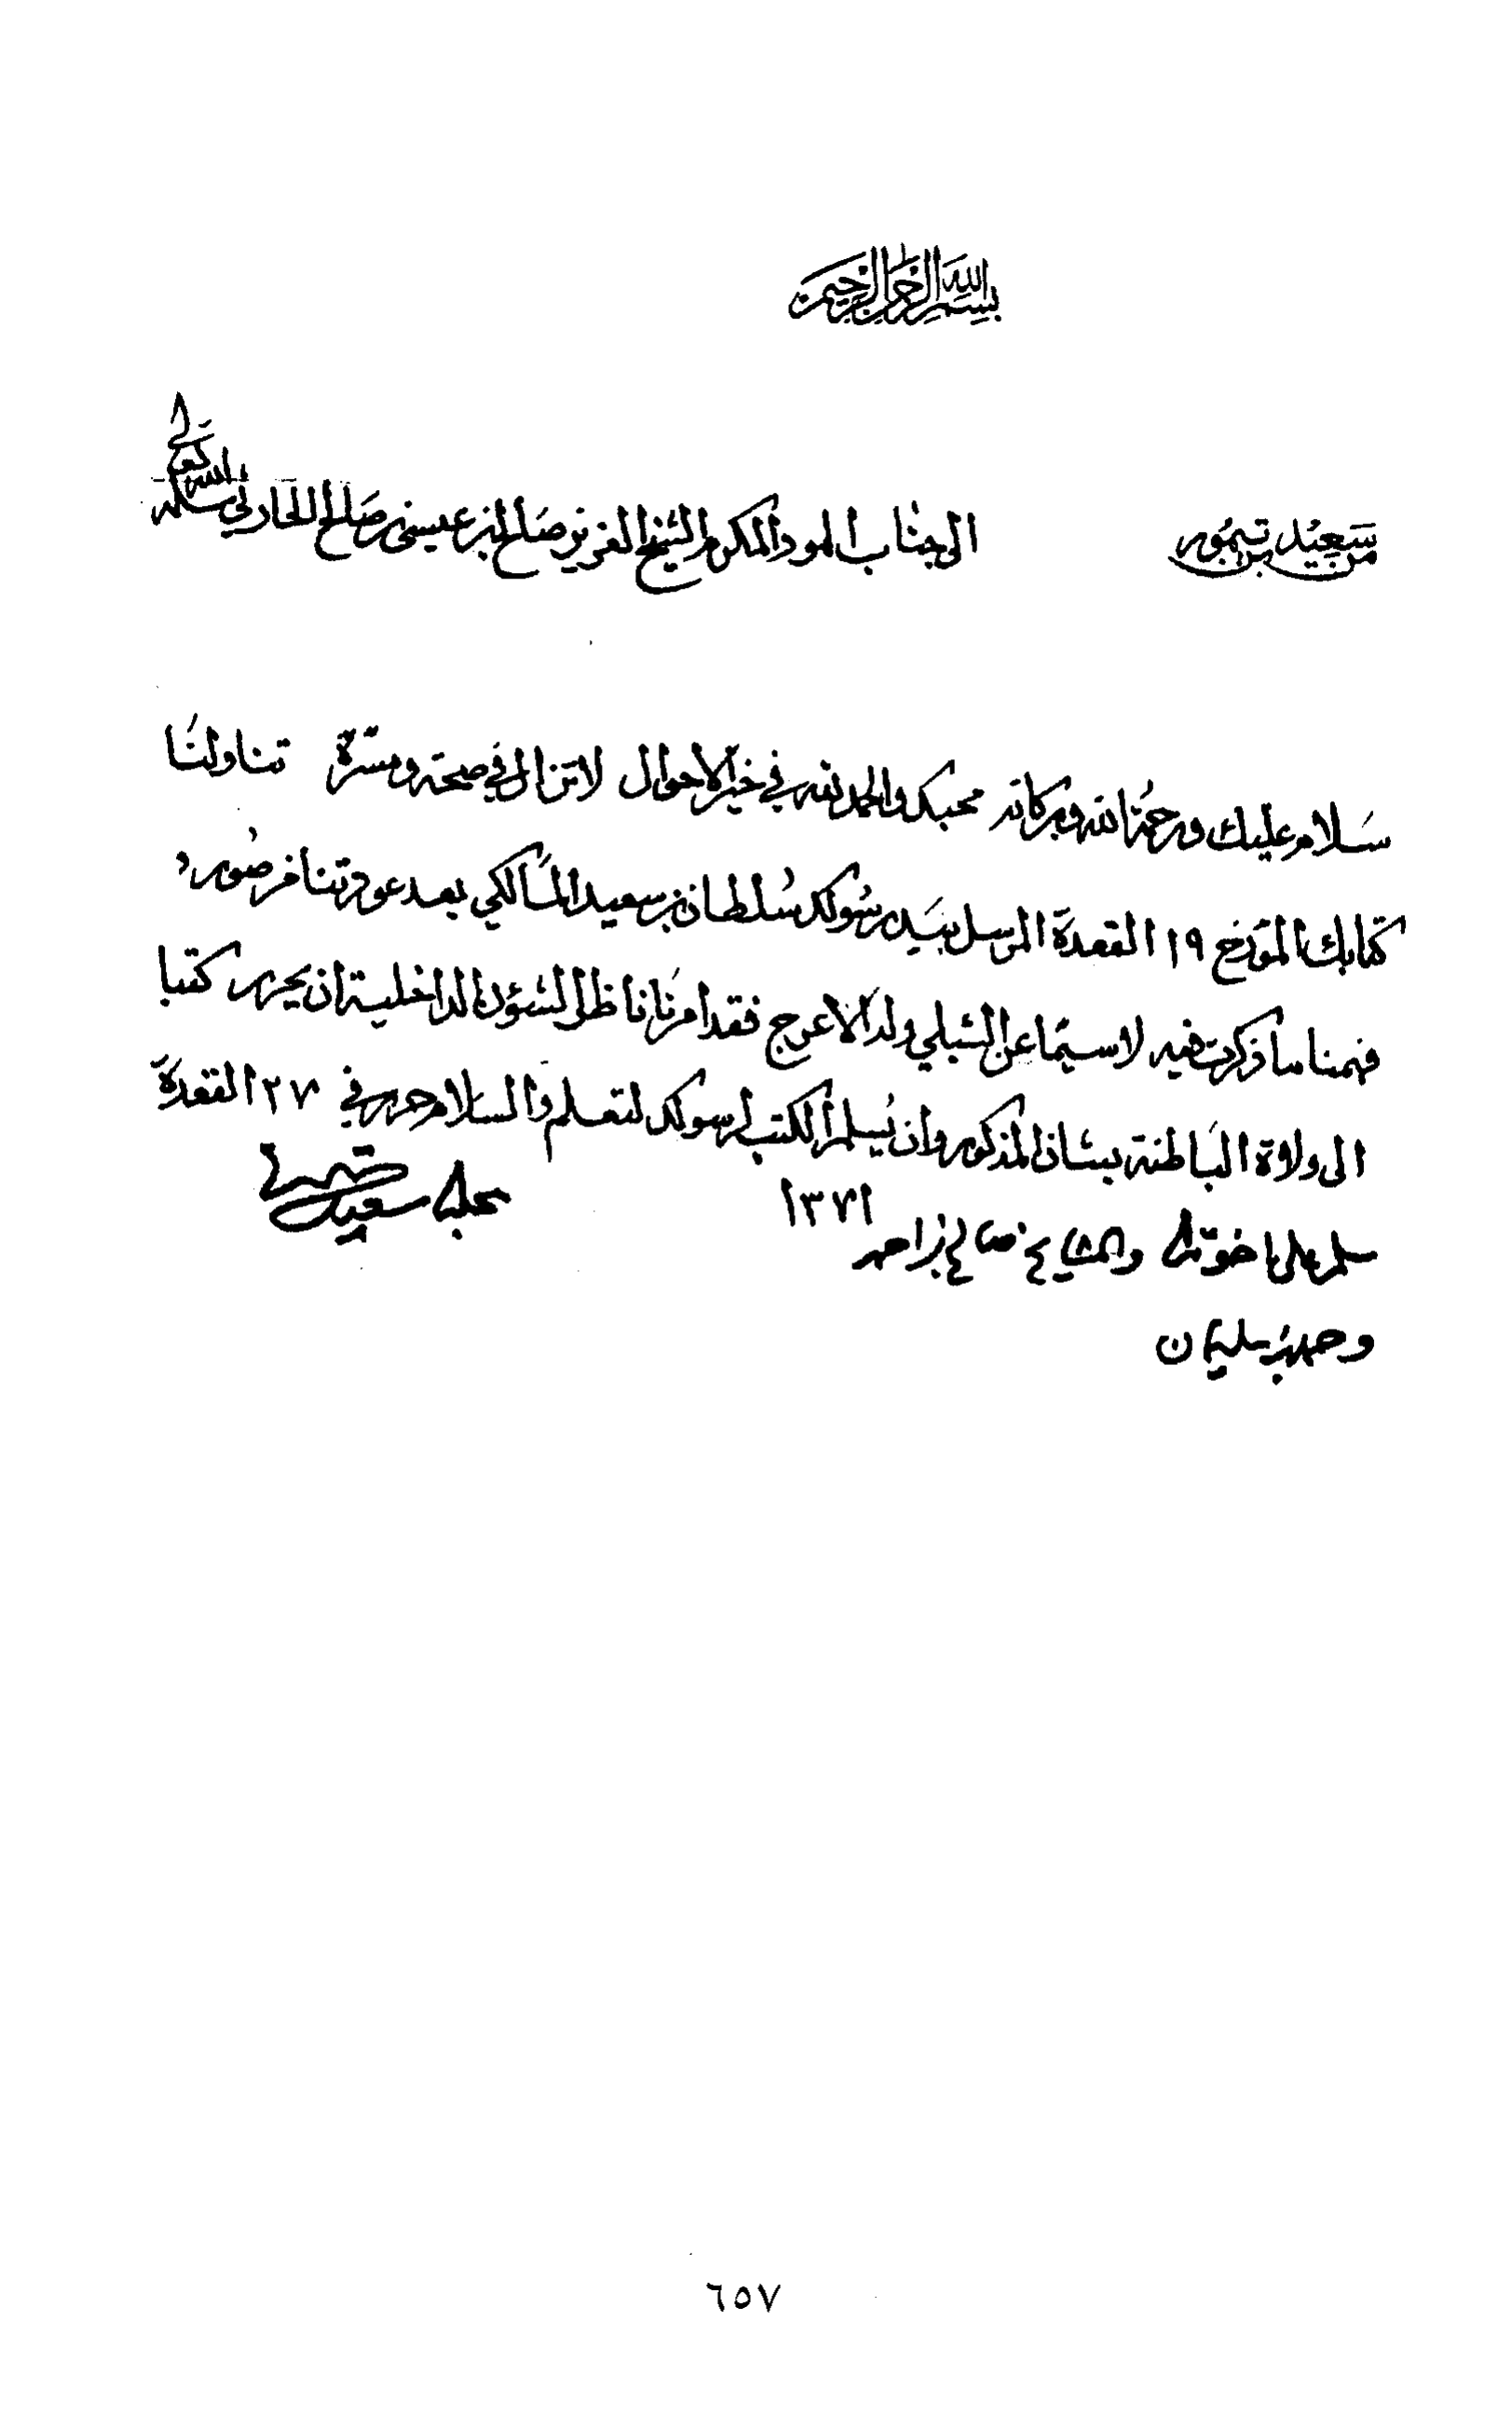 بسم الله الرحمن الرحيم
من سعيد بن تيمور الى جناب المود المكرم الشيخ العزيز صالح بن عيسى بن صالح الحارثي سلمه الله تعالى
سلام عليك ورحمة الله وبركاته محبك والحمد لله في خير الاحوال لا تزال في صحة ومسرة تناولنا
كتابك المؤرخ ١٩ القعدة المرسل بيد رسولك سلطان بن سعيد المالكي بعد عودتنا من صور و
فهمنا ما ذكرت فيه لا سيما عن الشبلي ولد الاعرج فقد امرنا ناظر الشؤن الداخلية ان يحرر كتبا
الى ولاة الباطنة بشان المذكور وان يسلم الكتب لرسولك لتعلم والسلام حرر في ٢٧ القعدة
١٣٧١
محبك سعيد بن تيمور
سلم على اخوتك والمشايخ صالح بن احمد
وحمد بن سليمان
٦٥٧